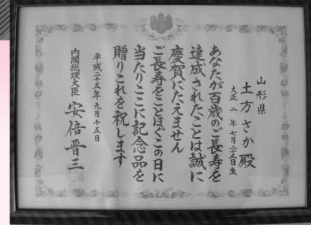 山形県
土方さか殿
大正二年七月二十五日生
あなたが百歳のご長寿を
達成されたことは誠に
慶賀にたえません
ご長寿をことほぐこの日に
当たりここに記念品を
贈りこれを祝します
平成二十五年九月十五日
内閣総理大臣 安倍晋三